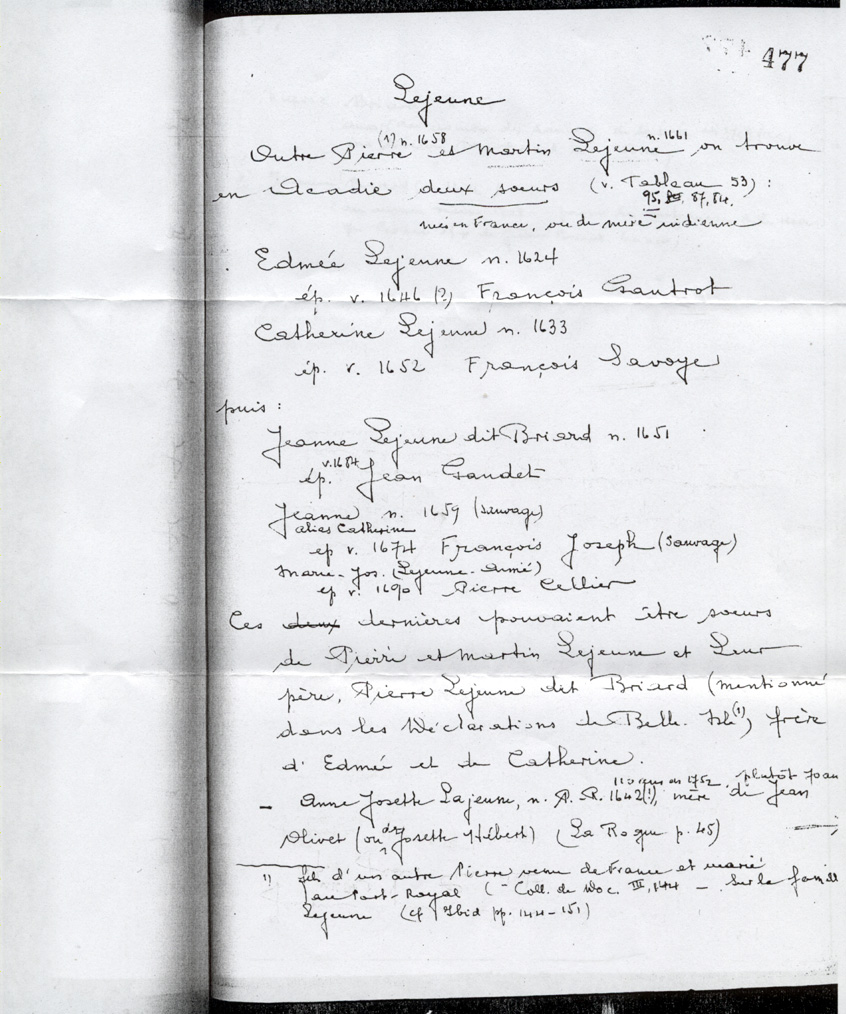 477
Lejeune
(1) n. 1658 n. 1661
Outre Pierre et Martin Lejeune, on trouve
en Acadie deux soeurs (v. Tableau 53) :
95, 87, 84.
nées en France, ou de mère indienne
Edmée Lejeune n. 1624
ép. v. 1646 (?) François Gautrot
Catherine Lejeune n. 1633
ép. v. 1652 François Savoye
puis :
Jeanne Lejeune dit Briard n. 1651
v. 1684
ép. Jean Gaudet
Jeanne n. 1659 (sauvage)
alias Catherine
ep v. 1674 François Joseph (sauvage)
Marie-Jos. (Lejeune-)
ep v. 1690 Pierre Cellier
Ces deux dernières pouvaient être soeurs
de Pierre et Martin Lejeune et Leur
père, Pierre Lejeune dit Briard (mentionné
dans les Déclarations de Belle-Isle (1), frère
d'Edmée et de Catherine.
110 ans en 1752, plutôt Joan
- Anne Josette Lajeune, n. P. R. 1642(!), mère de Jean
Olivet (ou Josette Hébert) (La Roque p. 45)
1) fils d'un autre Pierre venu de France et marié
au Port-Royal (- Coll. de Doc. III, 144 - Sur la famille
Lejeune (cf Ibid pp. 144-151)